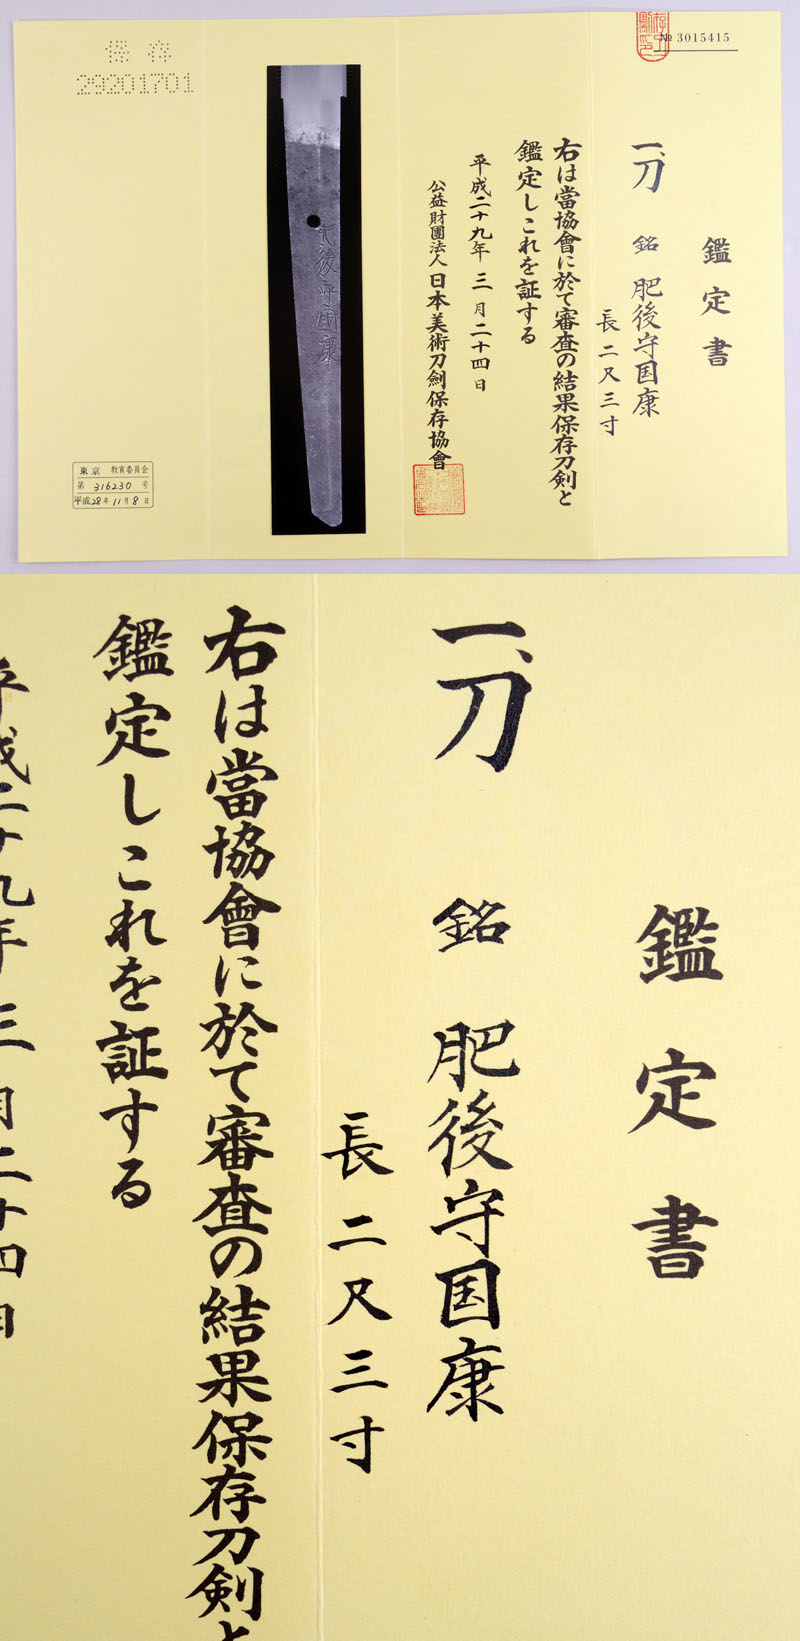 № 3015415
鑑定書
一、刀 銘 肥後守国康
長二尺三寸
右は當協會に於て審査の結果保存刀剣と
鑑定しこれを証する
平成二十九年三月二十四日
公益財團法人日本美術刀劍保存協會
肥後守国康
保存
29201701
東京 教育委員会
第 316230 号
平成28年11月8日
鑑定書
一、刀 銘 肥後守国康
長二尺三寸
右は當協會に於て審査の結果保存刀剣と
鑑定しこれを証する
平成二十九年三月二十四日